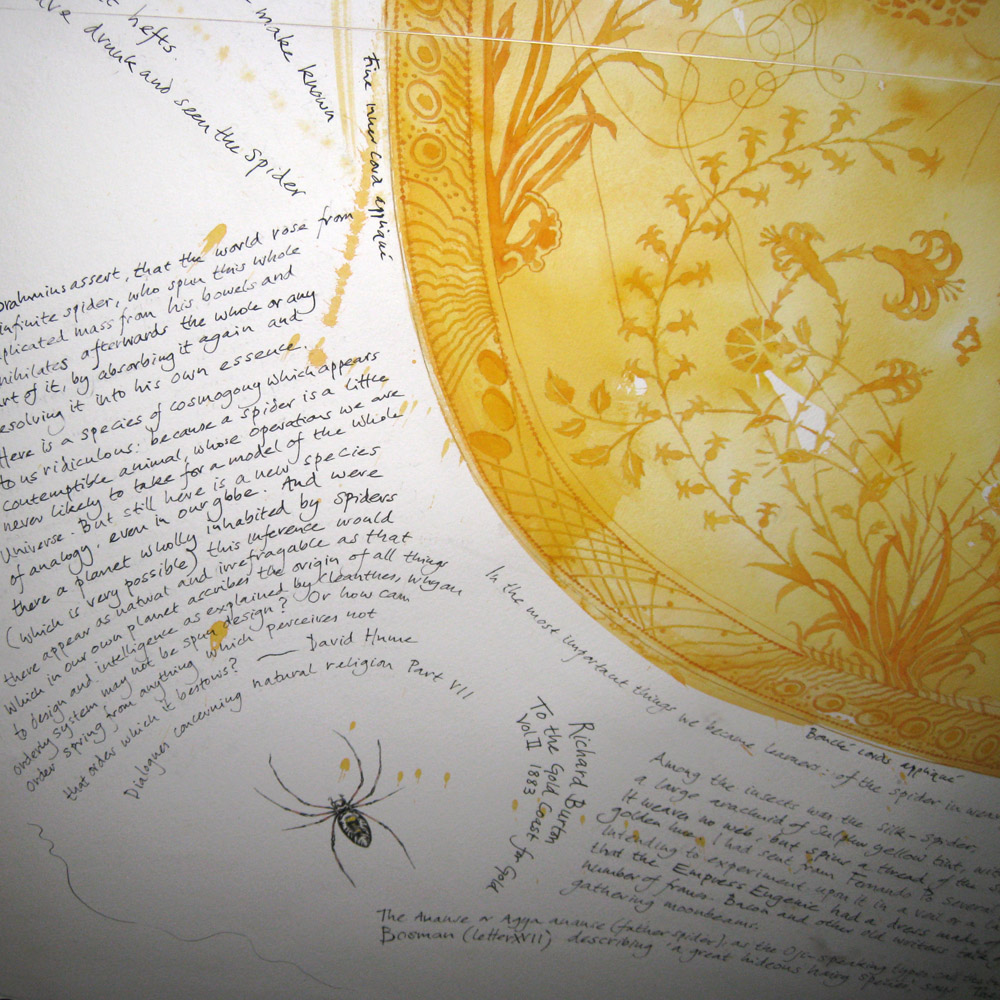 t hefts.
ave drunk and seen the Spider
make known
Fine inner cord appliqué
brahmins assert, that the world rose from
infinite spider, who spun this whole
plicated mass from his bowels and
nihilates afterwards the whole or any
rt of it, by absorbing it again and
esolving it into his own essence
Here is a species of cosmogony which appears
to us ridiculous: because a spider is a little
contemptible animal, whose operations we are
never likely to take for a model of the whole
Universe. But still here is a new species
of analogy, even in our globe. And were
there a planet wholly inhabited by spiders
(which is very possible) this inference would
there appear as natural and irrefragable as that
which in our own planet ascribes the origin of all things
to design and intelligence as explained by Cleanthes, why an
orderly system may not be spun design? Or how can
order spring from anything which perceives not
that order which it bestows? — David Hume
Dialogues concerning natural religion Part VII
In the most important things we became learners: of the spider in weav
Bouclé cords appliqué
Richard Burton
To the Gold Coast for Gold
Vol II 1883
Among the insects was the silk-spider
a large arachnid of Sulphur yellow tint, wit
It weaves no web, but spins a thread of the
golden hue. I had sent from Fernando Po several
intending to experiment upon it in a veil or a
that the Empress Eugenie had a dress made of
number of frauns. Bacon and other old writers talk of
gathering moonbeams.
The Ananse or Agya ananse (father spider), as the Oji-speaking types call the
Bosman (letter XVII) describing 'a great hideous hairy spider', says